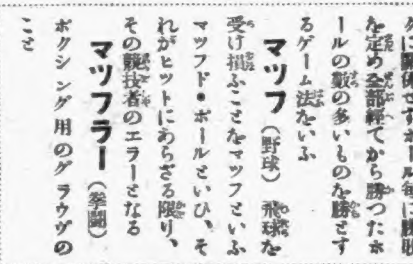 を定め全部經てから勝つたホ
ールの數の多いものを勝とす
るゲーム法をいふ
マツフ（野球）飛球を
受け損ふことをマツフといふ
マツフド・ボールといひ、そ
れがヒットにあらざる限り、
その競技者のエラーとなる
マツフラー（拳鬪）
ボクシング用のグラウヴの
こと